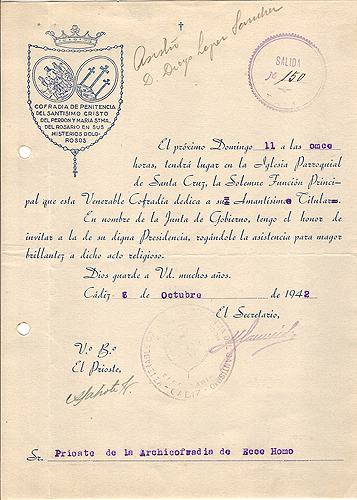 Asistió
D. Diego Lopez Sanchez
SALIDA
Nº 150
COFRADIA DE PENITENCIA
DEL SANTISIMO CRISTO
DEL PERDON Y MARIA STMA.
DEL ROSARIO EN SUS
MISTERIOS DOLO-
ROSOS
El próximo Domingo 11 a las omce
horas, tendrá lugar en la Iglesia Parroquial
de Santa Cruz, la Solemne Función Princi-
pal que esta Venerable Cofradía dedica a su Amantísimo Titular.
En nombre de la Junta de Gobierno, tengo el honor de
invitar a la de su digna Presidencia, rogándole la asistencia para mayor
brillantez a dicho acto religioso.
Dios guarde a Vd. muchos años.
Cádiz 6 de Octubre de 1942
El Secretario,
V.º B.º
El Prioste,
CADIZ
Sr. Prioste de la Archicofradia de Ecce Homo